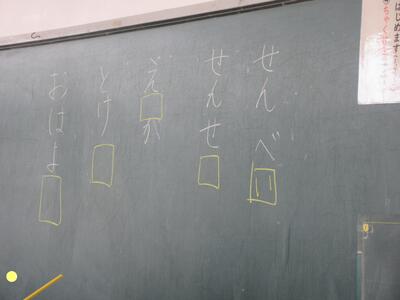 せんべい
せんせ□
え□が
とけ□
おはよ□
はじめます